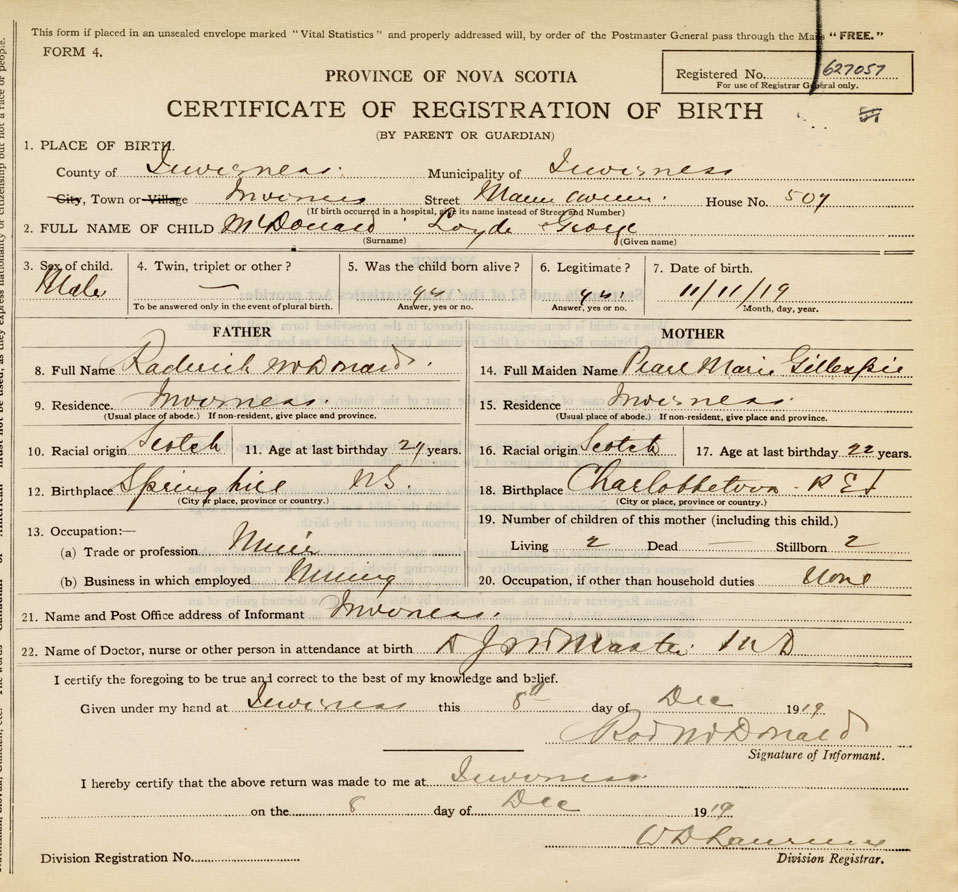 This form if placed in an unsealed envelope marked "Vital Statistics" and properly addressed will, by order of the Postmaster General pass through the Mails "FREE."
FORM 4.
PROVINCE OF NOVA SCOTIA
Registered No. 627057
For use of Registrar General only.
CERTIFICATE OF REGISTRATION OF BIRTH
(BY PARENT OR GUARDIAN)
1. PLACE OF BIRTH.
County of Inverness. Municipality of Inverness
City, Town or Village Inverness Street House No. 507
(If birth occurred in a hospital, give its name instead of Street and Number)
2. FULL NAME OF CHILD McDonald Loyde George
(Surname) (Given name)
3. Sex of child. 4. Twin, triplet or other? 5. Was the child born alive? 6. Legitimate? 7. Date of birth.
Male — yes yes 11/11/19
To be answered only in the event of plural birth. Answer, yes or no. Answer, yes or no. Month, day, year.
FATHER MOTHER
8. Full Name Roderick McDonald. 14. Full Maiden Name Pearl Marie Gillespie
9. Residence. Inverness. 15. Residence Inverness.
(Usual place of abode.) If non-resident, give place and province. (Usual place of abode.) If non-resident, give place and province.
10. Racial origin Scotch 11. Age at last birthday years. 16. Racial origin Scotch 17. Age at last birthday 22 years.
12. Birthplace Springhill NS. 18. Birthplace Charlottetown P E I
(City or place, province or country.) (City or place, province or country.)
19. Number of children of this mother (including this child.)
13. Occupation:—
(a) Trade or profession Miner Living 2 Dead — Stillborn 2
(b) Business in which employed Mining 20. Occupation, if other than household duties None
21. Name and Post Office address of Informant Inverness.
22. Name of Doctor, nurse or other person in attendance at birth. A J McMaster M D
I certify the foregoing to be true and correct to the best of my knowledge and belief.
Given under my hand at Inverness this 8th day of Dec 1919.
Rod McDonald
Signature of Informant.
I hereby certify that the above return was made to me at Inverness
on the 8 day of Dec 1919
W D Lawrence
Division Registration No. Division Registrar.